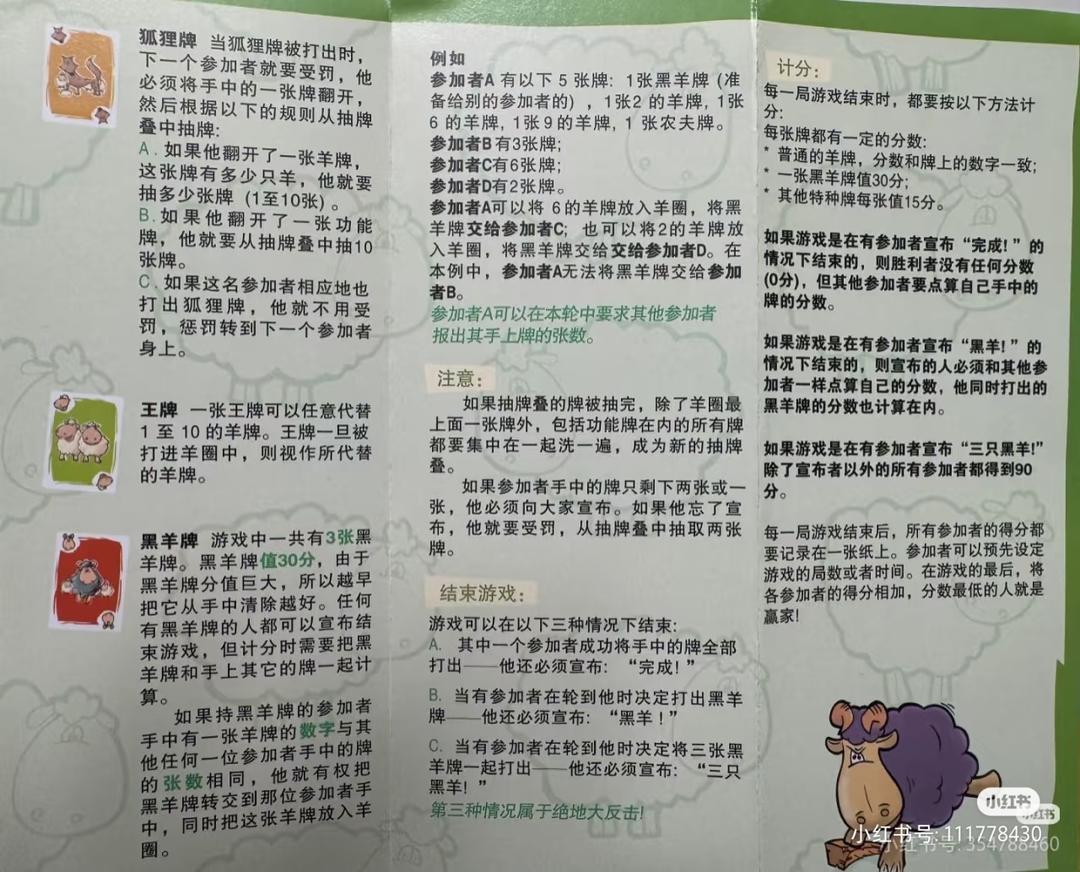 狐狸牌 当狐狸牌被打出时，
下一个参加者就要受罚，他
必须将手中的一张牌翻开，
然后根据以下的规则从抽牌
叠中抽牌：
A．如果他翻开了一张羊牌，
这张牌有多少只羊，他就要
抽多少张牌（1至10张）。
B．如果他翻开了一张功能
牌，他就要从抽牌叠中抽10
张牌。
C．如果这名参加者相应地也
打出狐狸牌，他就不用受
罚，惩罚转到下一个参加者
身上。
王牌 一张王牌可以任意代替
1 至 10 的羊牌。王牌一旦被
打进羊圈中，则视作所代替
的羊牌。
黑羊牌 游戏中一共有3张黑
羊牌。黑羊牌值30分，由于
黑羊牌分值巨大，所以越早
把它从手中清除越好。任何
有黑羊牌的人都可以宣布结
束游戏，但计分时需要把黑
羊牌和手上其它的牌一起计
算。
如果持黑羊牌的参加者
手中有一张羊牌的数字与其
他任何一位参加者手中的牌
的张数相同，他就有权把
黑羊牌转交到那位参加者手
中，同时把这张羊牌放入羊
圈。
例如
参加者A 有以下 5 张牌：1张黑羊牌（准
备给别的参加者的），1张2 的羊牌，1张
6 的羊牌，1张 9 的羊牌，1 张农夫牌。
参加者B 有3张牌；
参加者C有6张牌；
参加者D有2张牌。
参加者A可以将 6的羊牌放入羊圈，将黑
羊牌交给参加者C；也可以将2的羊牌放
入羊圈，将黑羊牌交给交给参加者D。在
本例中，参加者A无法将黑羊牌交给参加
者B。
参加者A可以在本轮中要求其他参加者
报出其手上牌的张数。
注意：
如果抽牌叠的牌被抽完，除了羊圈最
上面一张牌外，包括功能牌在内的所有牌
都要集中在一起洗一遍，成为新的抽牌
叠。
如果参加者手中的牌只剩下两张或一
张，他必须向大家宣布。如果他忘了宣
布，他就要受罚，从抽牌叠中抽取两张
牌。
结束游戏：
游戏可以在以下三种情况下结束：
A. 其中一个参加者成功将手中的牌全部
打出——他还必须宣布：“完成！”
B. 当有参加者在轮到他时决定打出黑羊
牌——他还必须宣布：“黑羊！”
C. 当有参加者在轮到他时决定将三张黑
羊牌一起打出——他还必须宣布：“三只
黑羊！”
第三种情况属于绝地大反击！
计分：
每一局游戏结束时，都要按以下方法计
分：
每张牌都有一定的分数：
* 普通的羊牌，分数和牌上的数字一致；
* 一张黑羊牌值30分；
* 其他特种牌每张值15分。
如果游戏是在有参加者宣布“完成！”的
情况下结束的，则胜利者没有任何分数
(0分)，但其他参加者要点算自己手中的
牌的分数。
如果游戏是在有参加者宣布“黑羊！”的
情况下结束的，则宣布的人必须和其他参
加者一样点算自己的分数，他同时打出的
黑羊牌的分数也计算在内。
如果游戏是在有参加者宣布“三只黑羊!”
除了宣布者以外的所有参加者都得到90
分。
每一局游戏结束后，所有参加者的得分都
要记录在一张纸上。参加者可以预先设定
游戏的局数或者时间。在游戏的最后，将
各参加者的得分相加，分数最低的人就是
赢家！
小红书
小红书
小红书号: 111778430
小红书号: 354788460